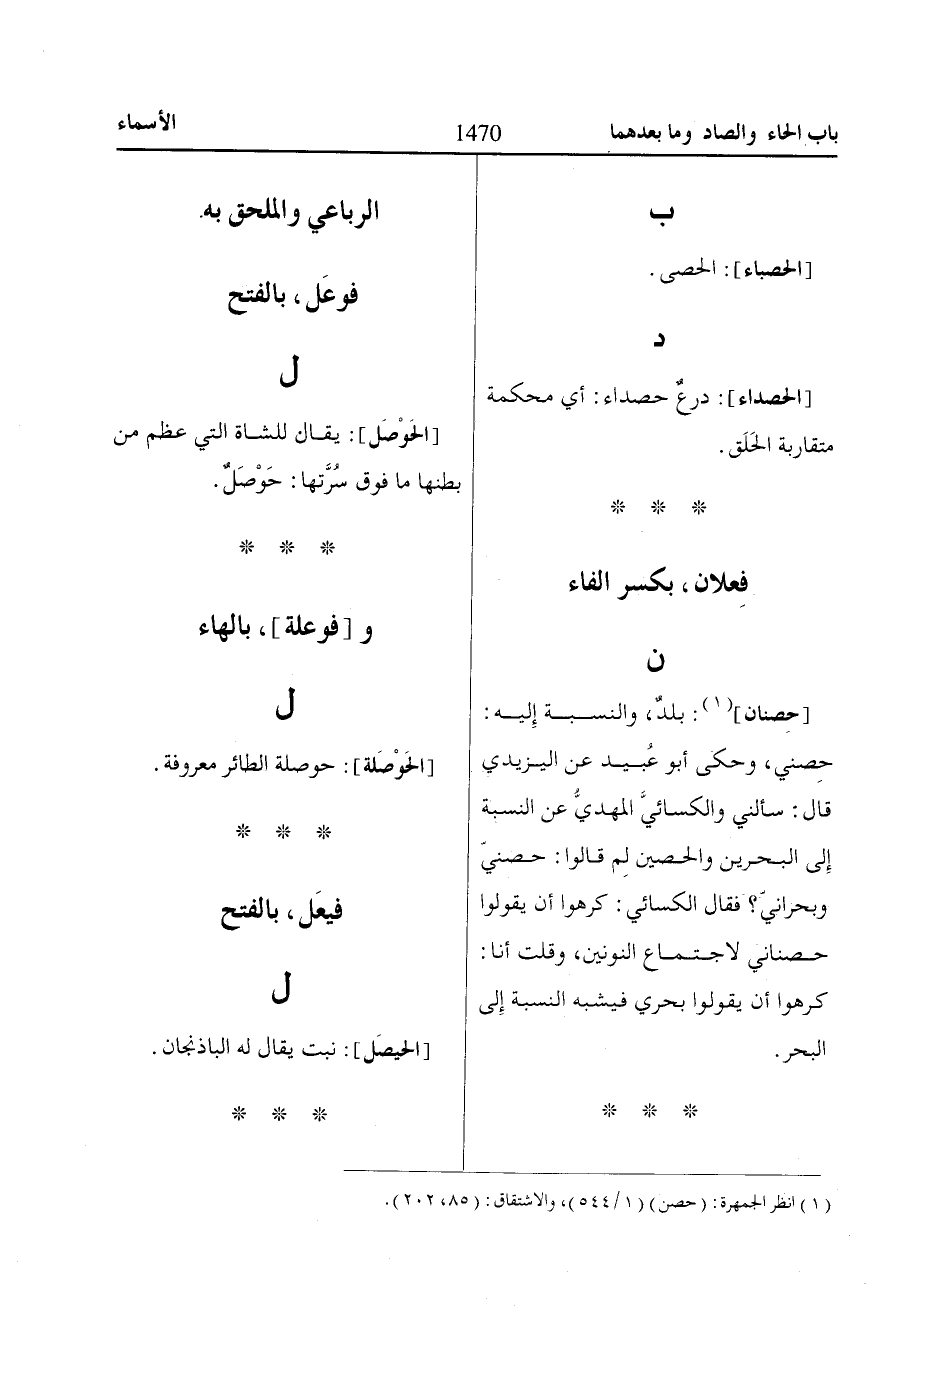 باب الحاء والصاد وما بعدهما
1470
الأسماء
ب
[الحصباء]: الحصى.
د
[الحصداء]: درعٌ حصداء: أي محكمة
متقاربة الحَلَق.
※ ※ ※
فِعلان، بكسر الفاء
ن
[حِصنان](١): بلدٌ، والنسبة إليه:
حِصني، وحكى أبو عُبيد عن اليزيدي
قال: سألني والكسائيَّ المهديُّ عن النسبة
إلى البحرين والحصين لِم قالوا: حصنيّ
وبحرانيّ؟ فقال الكسائي: كرهوا أن يقولوا
حصناني لاجتماع النونين، وقلت أنا:
كرهوا أن يقولوا بحري فيشبه النسبة إلى
البحر.
※ ※ ※
الرباعي والملحق به
فوعَل، بالفتح
ل
[الحَوْصَل]: يقال للشاة التي عظم من
بطنها ما فوق سُرَّتها: حَوْصَلٌ.
※ ※ ※
و [فوعلة]، بالهاء
ل
[الحَوْصَلة]: حوصلة الطائر معروفة.
※ ※ ※
فيعَل، بالفتح
ل
[الحيصَل]: نبت يقال له الباذنجان.
※ ※ ※
(١) انظر الجمهرة: (حصن) (١/ ٥٤٤)، والاشتقاق: (٨٥، ٢٠٢).